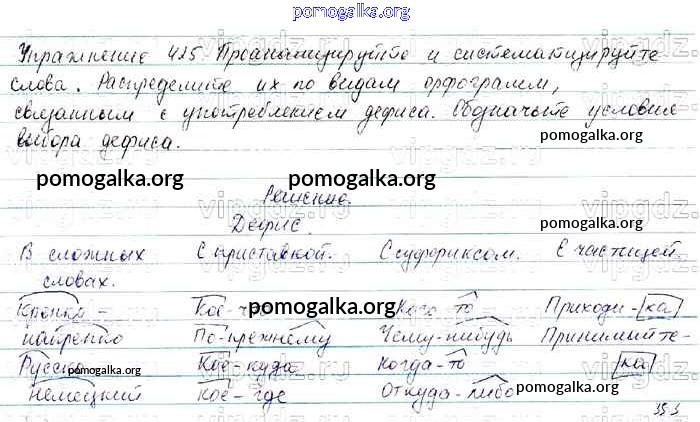 pomogalka.org
Упражнение 425 Проанализируйте и систематизируйте
слова. Распределите их по видам орфограмм,
связанным с употреблением дефиса. Обозначьте условие
выбора дефиса.
pomogalka.org
pomogalka.org pomogalka.org
Решение.
Дефис.
pomogalka.org
В сложных С приставкой. С суффиксом. С частицей.
словах.
pomogalka.org
Кое- Кого-то Приходи-ка
найренко По-прежнему Чему-нибудь Принимайте-
pomogalka.org
Русско Кое-куда Когда-то ка
pomogalka.org
немецкий кое-где Откуда-либо
pomogalka.org
353